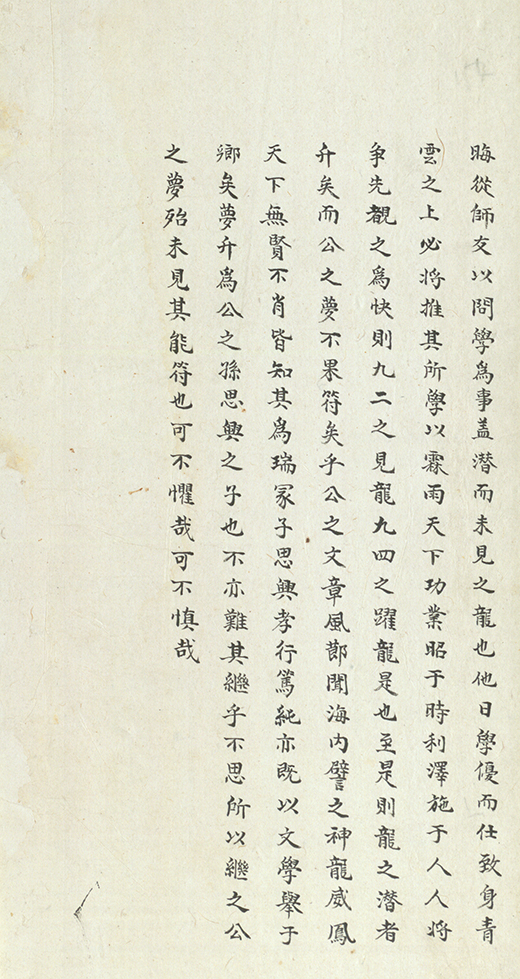 晦從師友以問學爲事盖潜而未見之龍也他日學優而仕致身青
雲之上必将推其所學以霖雨天下功業昭于時利澤施于人人将
争先覩之爲快則九二之見龍九四之躍龍是也至是則龍之潜者
升矣而公之夢不果符矣乎公之文章風節聞海内譬之神龍威鳳
天下無賢不肖皆知其爲瑞冡子思興孝行篤純亦既以文學舉于
鄉矣夢升爲公之孫思興之子也不亦難其繼乎不思所以繼之公
之夢殆未見其能符也可不懼哉可不慎哉